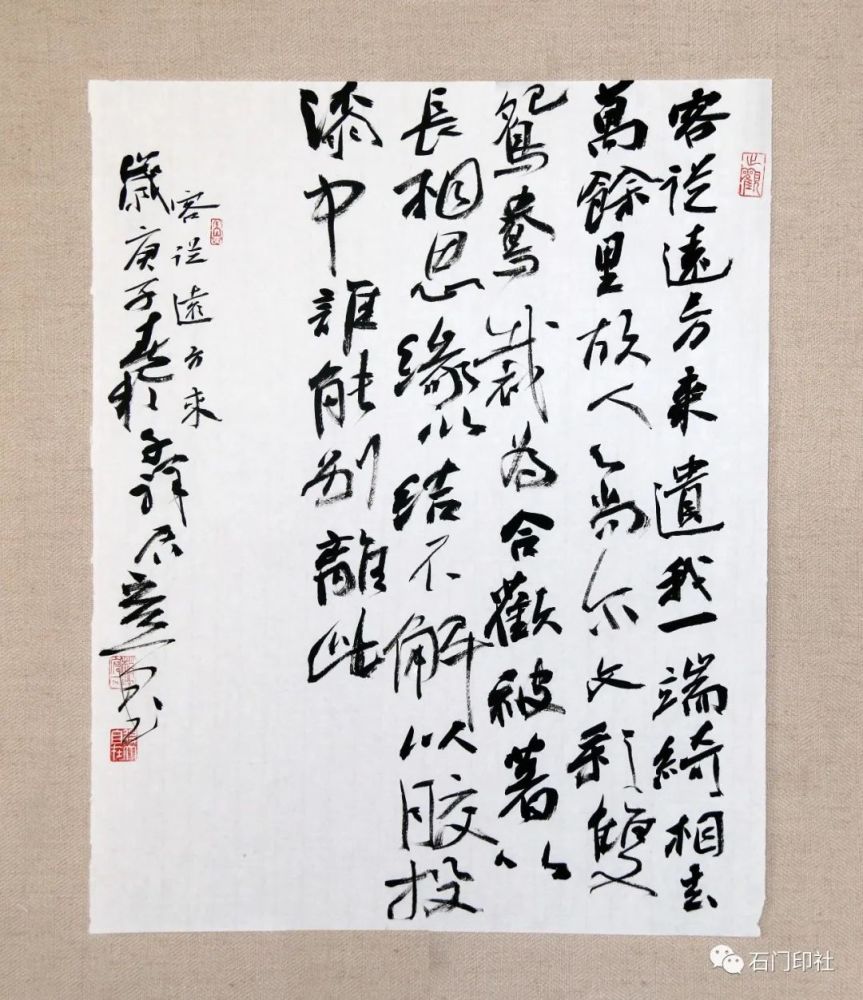 止觀
客從遠方來遺我一端綺相去
萬餘里故人心尚尔文彩雙
鴛鴦裁為合歡被著以
長相思緣以結不解以胶投
漆中誰能別離此
客從遠方來
歲庚子春於
自在
石门印社